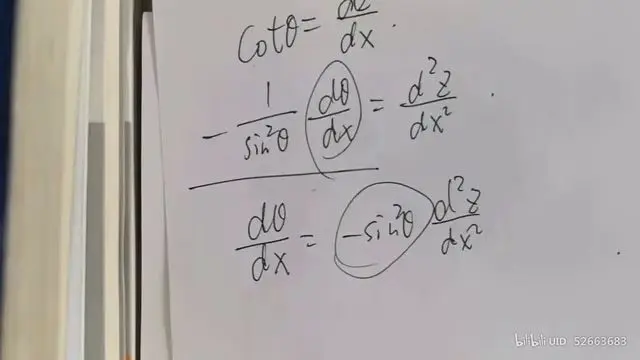 cotθ = dz/dx.
- 1/sin²θ dθ/dx = d²z/dx².
dθ/dx = -sin²θ d²z/dx²
bilibili UID 52663683